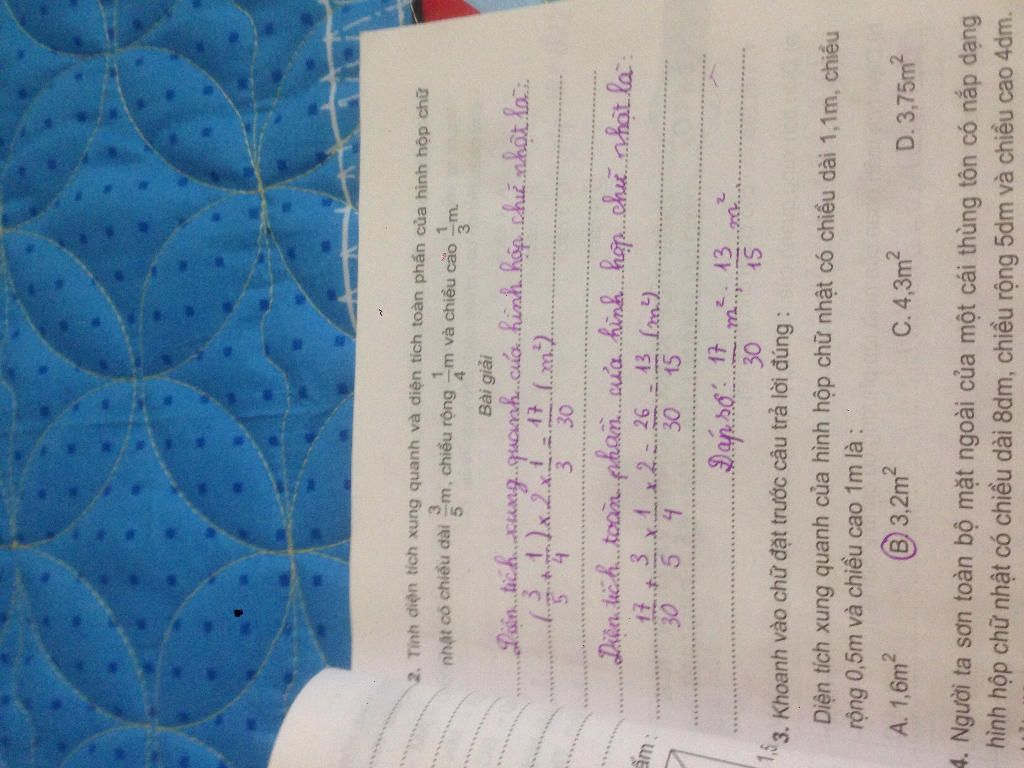 2. Tính diện tích xung quanh và diện tích toàn phần của hình hộp chữ
nhật có chiều dài 3/5 m, chiều rộng 1/4 m và chiều cao 1/3 m.
Bài giải
Diện tích xung quanh của hình hộp chữ nhật là:
(3/5 + 1/4) x 2 x 1/3 = 17/30 (m²)
Diện tích toàn phần của hình hộp chữ nhật là:
17/30 + 3/5 x 1/4 x 2 = 26/30 = 13/15 (m²)
Đáp số: 17/30 m². 13/15 m²
3. Khoanh vào chữ đặt trước câu trả lời đúng :
Diện tích xung quanh của hình hộp chữ nhật có chiều dài 1,1m, chiều
rộng 0,5m và chiều cao 1m là :
A. 1,6m² B. 3,2m² C. 4,3m² D. 3,75m²
4. Người ta sơn toàn bộ mặt ngoài của một cái thùng tôn có nắp dạng
hình hộp chữ nhật có chiều dài 8dm, chiều rộng 5dm và chiều cao 4dm.